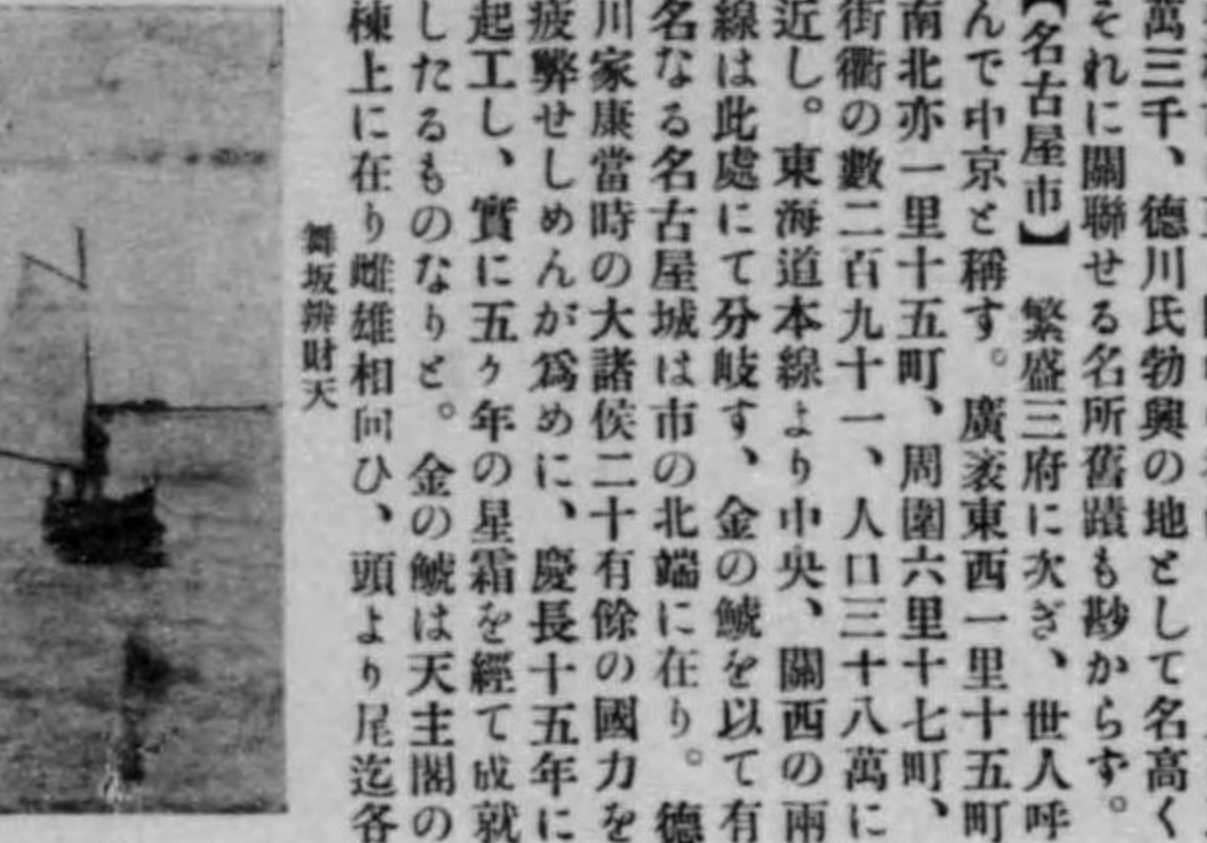 萬三千、德川氏勃興の地として名高く
それに關聯せる名所舊蹟も尠からず。
【名古屋市】 繁盛三府に次ぎ、世人呼
んで中京と稱す。廣袤東西一里十五町
南北亦一里十五町、周圍六里十七町、
街衢の數二百九十一、人口三十八萬に
近し。東海道本線より中央、關西の兩
線は此處にて分岐す、金の鯱を以て有
名なる名古屋城は市の北端に在り。德
川家康當時の大諸侯二十有餘の國力を
疲弊せしめんが爲めに、慶長十五年に
起工し、實に五ヶ年の星霜を經て成就
したるものなりと。金の鯱は天主閣の
棟上に在り雌雄相向ひ、頭より尾迄各
舞坂辨財天